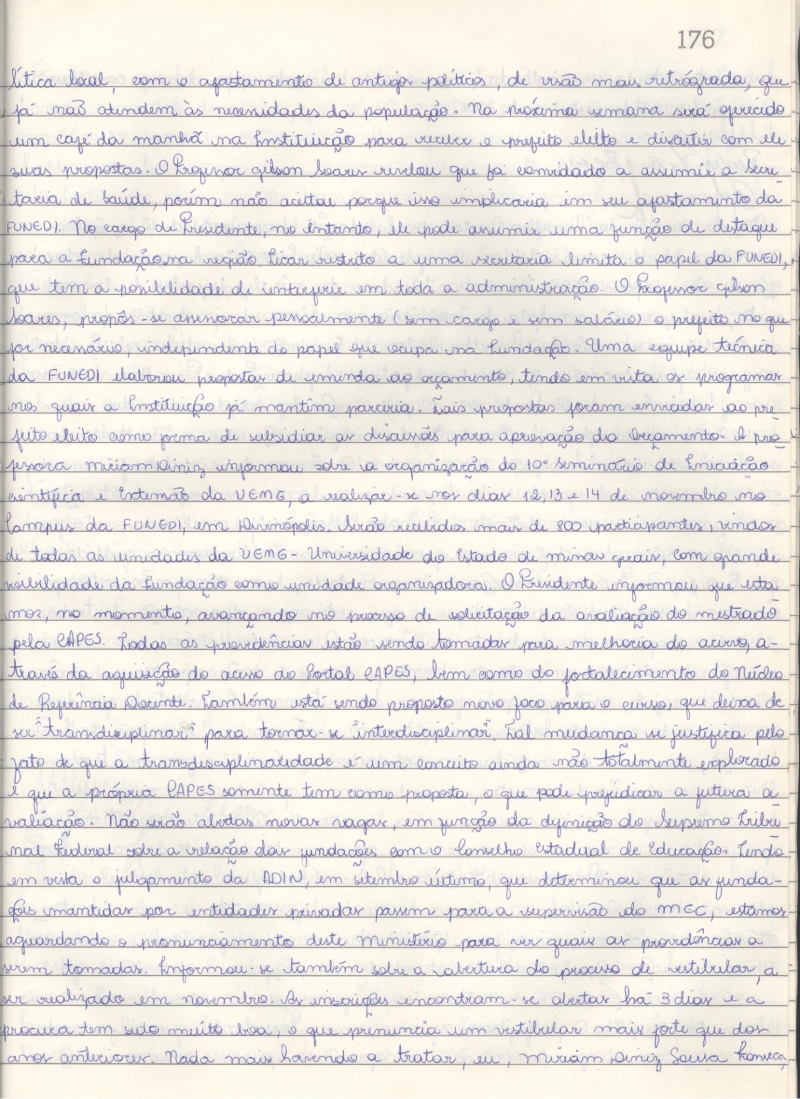 176
lítica local, com o afastamento de antigos políticos, de visão mais retrógrada, que
já não atendem às necessidades da população. Na próxima semana será oferecido
um café da manhã na Instituição para receber o prefeito eleito e discutir com ele
suas propostas. O Professor Gilson Soares revelou que foi convidado a assumir a Secre
taria de Saúde, porém não aceitou porque isso implicaria em seu afastamento da
FUNEDI. No cargo de Presidente, no entanto, ele pode assumir uma função de destaque
para a Fundação na região. Ficar restrito a uma secretaria limita o papel da FUNEDI,
que tem a possibilidade de interferir em toda a administração. O Professor Gilson
Soares, propôs-se assessorar pessoalmente (sem cargo e sem salário) o prefeito no que
for necessário, independente do papel que ocupa na Fundação. Uma equipe técnica
da FUNEDI elaborou propostas de emenda ao orçamento, tendo em vista os programas
nos quais a Instituição já mantém parceria. Tais propostas foram enviadas ao pre
feito eleito como forma de subsidiar as discussões para aprovação do Orçamento. A pro
fessora Miriam Diniz informou sobre a organização do 10º Seminário de Iniciação
Científica e Extensão da UEMG, a realizar-se nos dias 12, 13 e 14 de novembro no
Campus da FUNEDI, em Divinópolis. Serão recebidos mais de 800 participantes, vindos
de todas as unidades da UEMG - Universidade do Estado de Minas Gerais, com grande
visibilidade da Fundação como unidade organizadora. O Presidente informou que esta
mos, no momento, avançando no processo de solicitação da avaliação do mestrado
pela CAPES. Todas as providências estão sendo tomadas para melhoria do acervo, a-
través da aquisição do acesso ao Portal CAPES, bem como do fortalecimento do Núcleo
de Referência Docente. Também está sendo proposto novo foco para o curso, que deixa de
ser "transdisciplinar" para tornar-se "interdisciplinar". Tal mudança se justifica pelo
fato de que a transdisciplinaridade é um conceito ainda não totalmente explorado
e que a própria CAPES somente tem como proposta, o que pode prejudicar a futura a
valiação. Não serão abertas novas vagas, em função da definição do Supremo Tribu
nal Federal sobre a relação das fundações com o Conselho Estadual de Educação. Tendo
em vista o julgamento da ADIN, em setembro último, que determinou que as funda-
ções mantidas por entidades privadas passem para a supervisão do MEC, estamos
aguardando o pronunciamento deste Ministério para ver quais as providências a
serem tomadas. Informou-se também sobre a abertura do processo de vestibular, a
ser realizado em novembro. As inscrições encontram-se abertas há 3 dias e a
procura tem sido muito boa, o que prenuncia um vestibular mais forte que dos
anos anteriores. Nada mais havendo a tratar, eu, Miriam Diniz Sousa Fonseca,